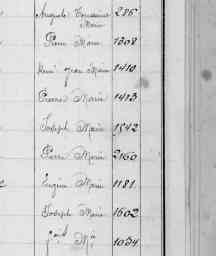 Auguste Toussaint 286
Marie
Pierre Marie 1308
René Jean Marie 1410
Pierre Marie 1413
Joseph Marie 1542
Pierre Marie 2160
Eugène Marie 1181
Joseph Marie 1602
Jph Mie 1034